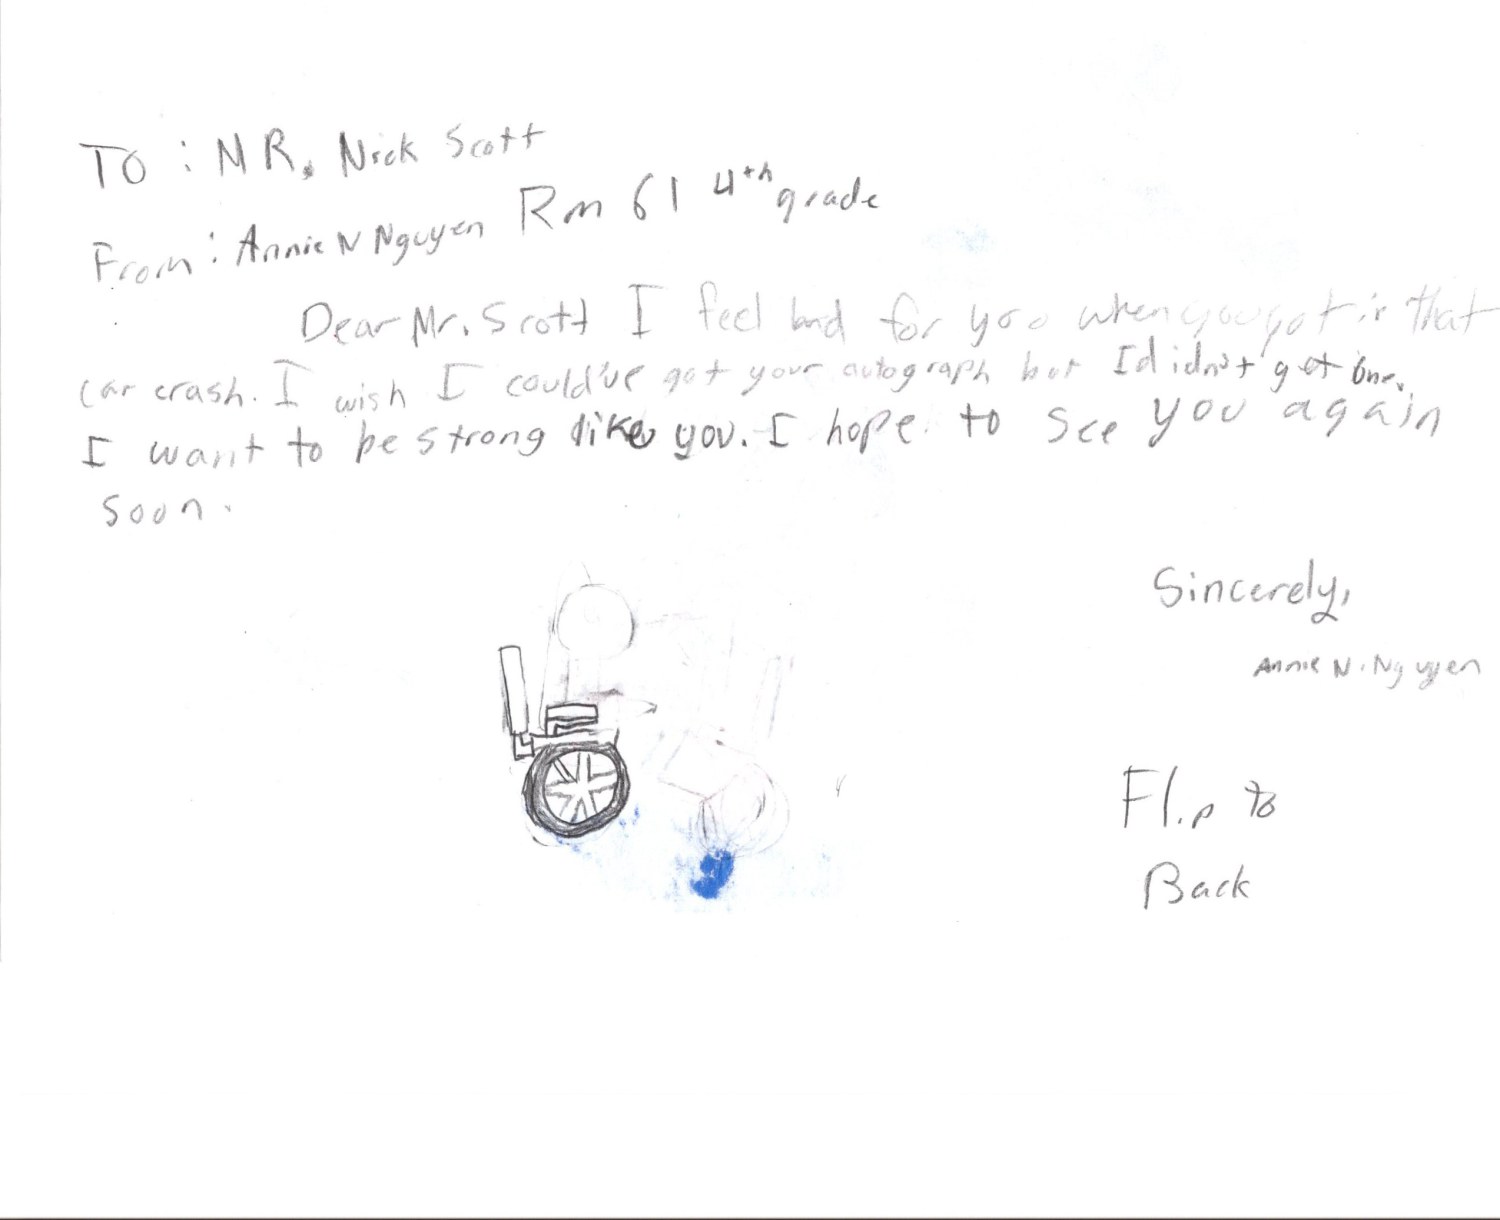 To : MR. Nick Scott
From : Annie N Nguyen Rm 61 4th grade
Dear Mr. Scott I feel bad for you when you got in that
car crash. I wish I could've got your autograph but I didn't get one.
I want to be strong like you. I hope to see you again
soon.
Sincerely,
Annie N. Nguyen
Flip to
Back